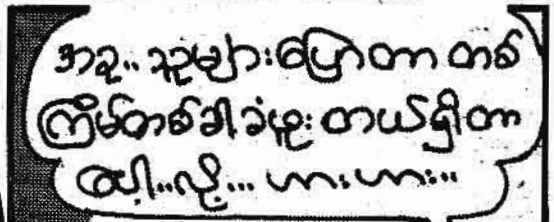 အခု.. သူများပြောတာ တစ်
ကြိမ်တစ်ခါ ခံဖူး တယ်ရှိတာ
ပေါ့..လို့... ဟားဟား..